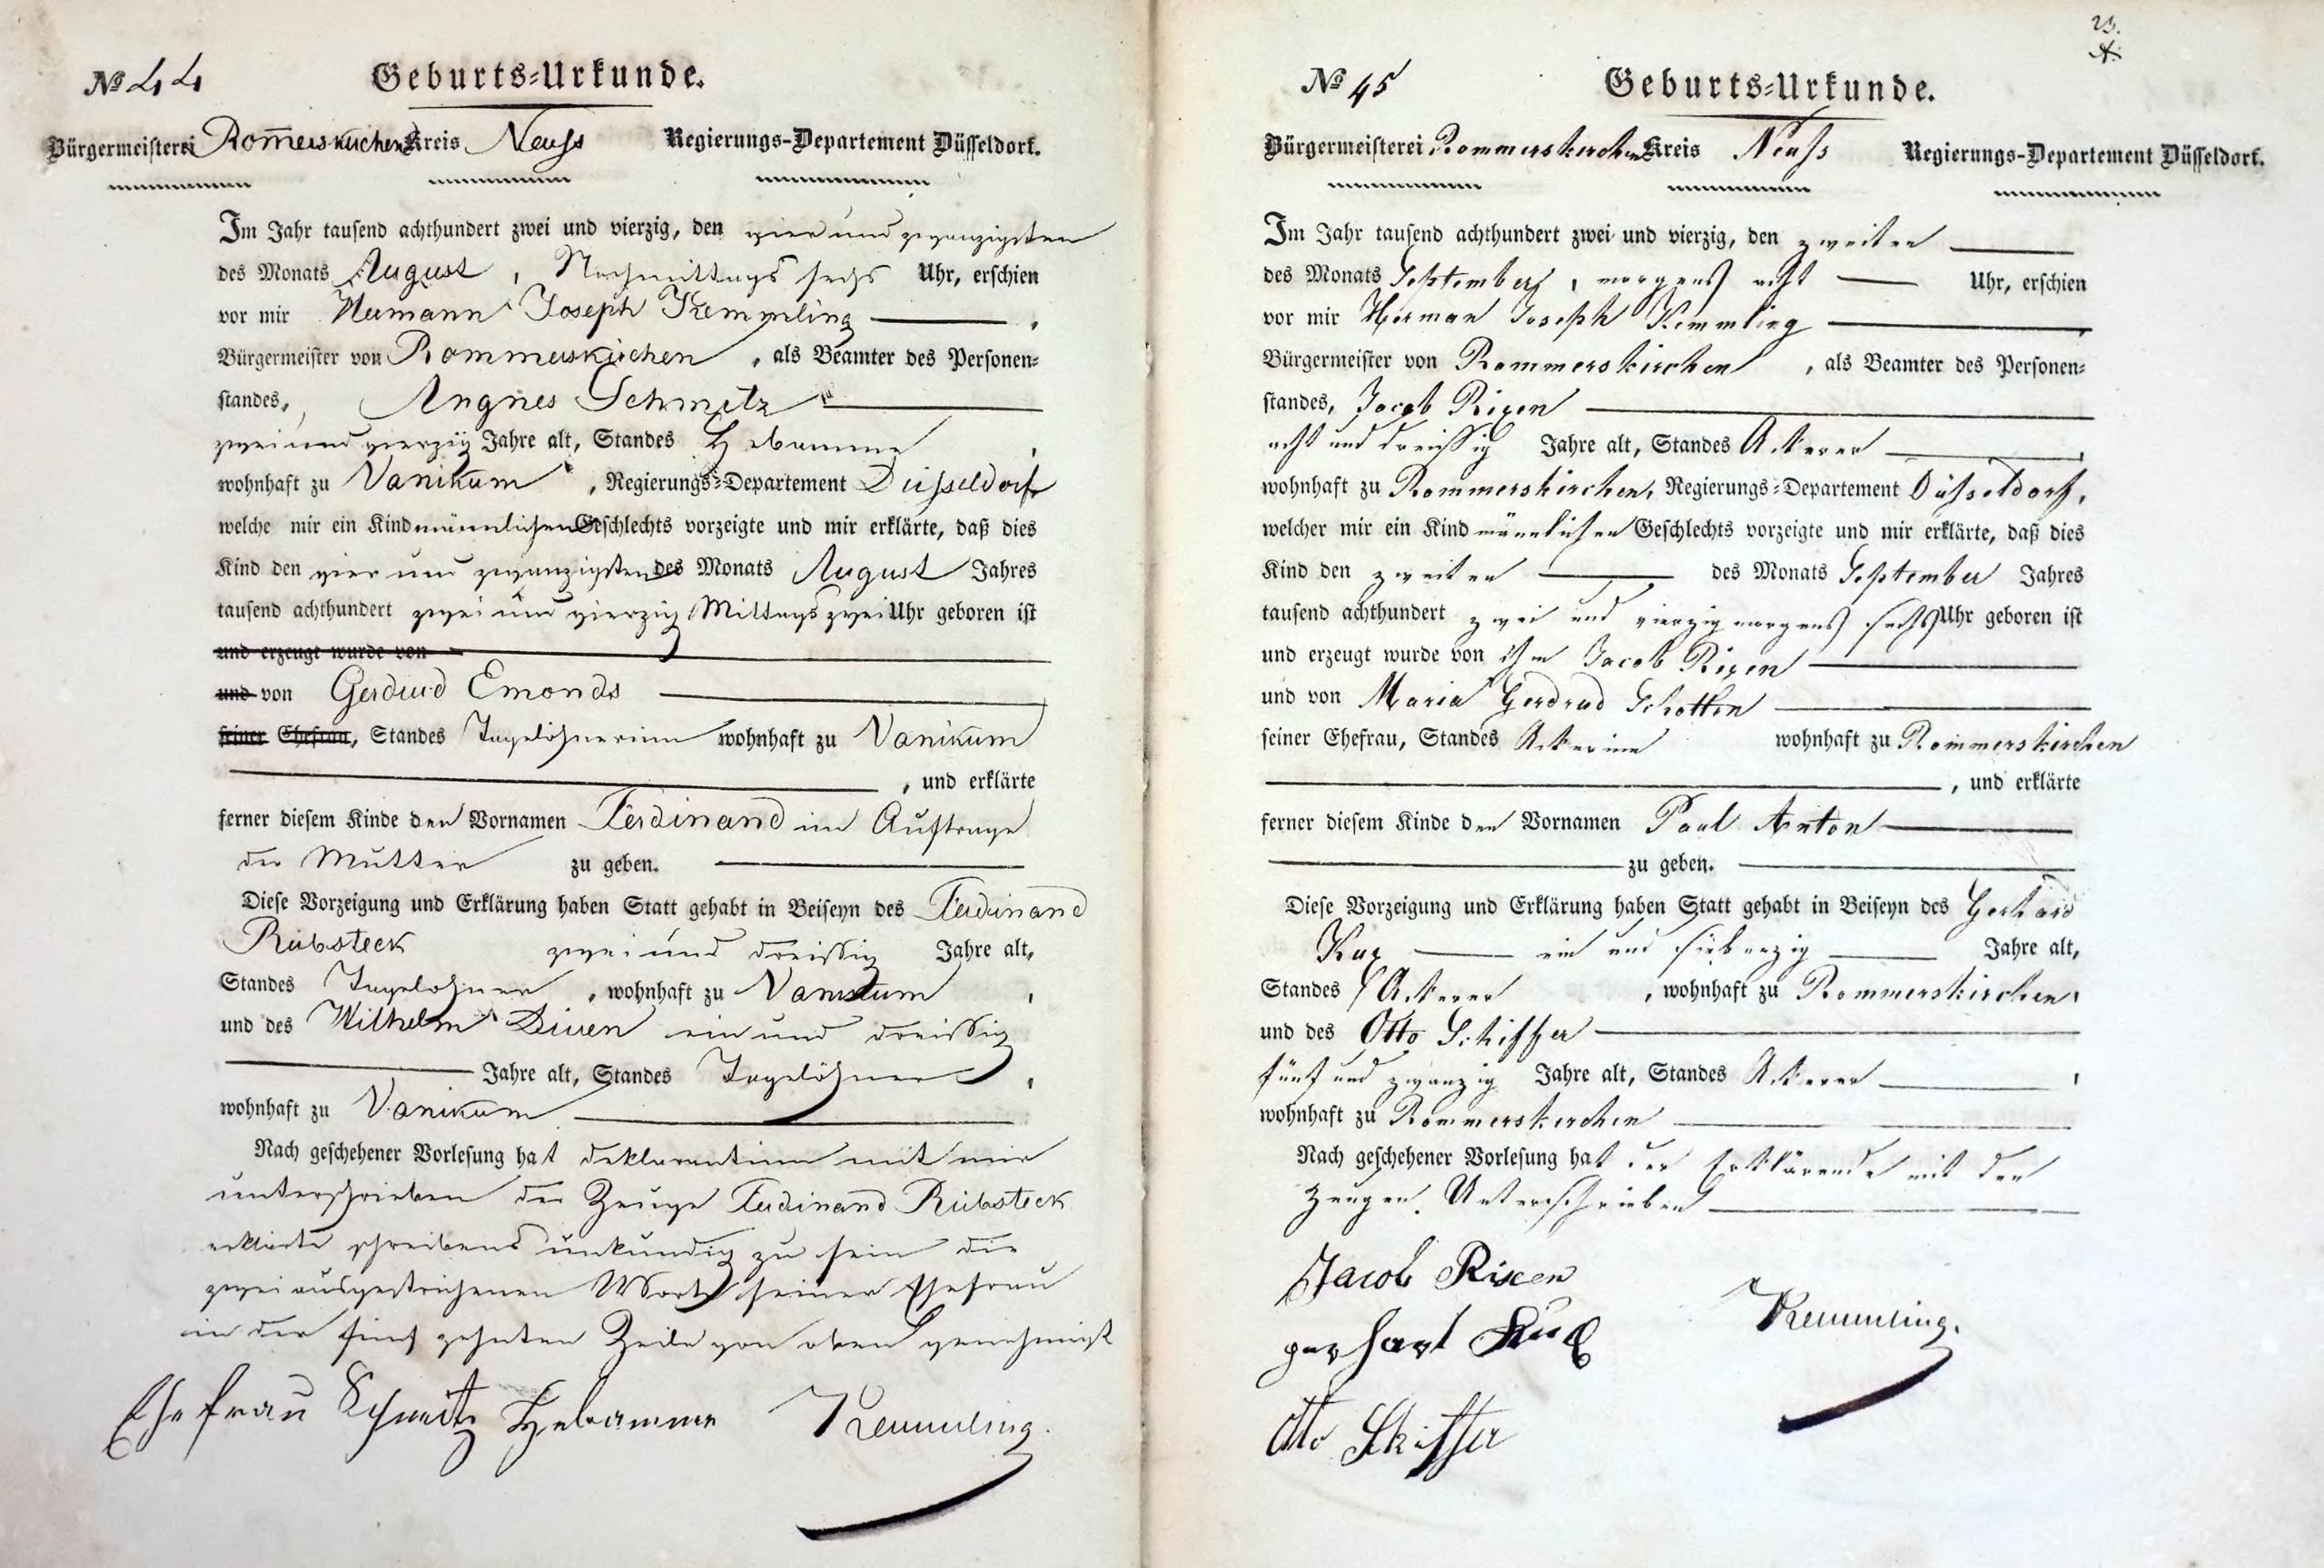 № 44 Geburts-Urkunde.
Bürgermeisterei Rom̅erskirchen Kreis Neuß Regierungs-Departement Düsseldorf.
Im Jahr tausend achthundert zwei und vierzig, den vier und zwanzigsten
des Monats August, Nachmittags sechs Uhr, erschien
vor mir Hermann Joseph Kemmling,
Bürgermeister von Rommerskirchen, als Beamter des Personen-
standes, Angnes Schmitz
zwei und vierzig Jahre alt, Standes Hebamme,
wohnhaft zu Vanikum, Regierungs-Departement Düsseldorf
welche mir ein Kind männlichen Geschlechts vorzeigte und mir erklärte, daß dies
Kind den vier und zwanzigsten des Monats August Jahres
tausend achthundert zwei und vierzig Mittags zwei Uhr geboren ist
und erzeugt wurde von
und von Gerdrud Emonds
seiner Ehefrau, Standes Tagelöhnerinn wohnhaft zu Vanikum
, und erklärte
ferner diesem Kinde den Vornamen Ferdinand im Auftrage
der Mutter zu geben.
Diese Vorzeigung und Erklärung haben Statt gehabt in Beiseyn des Ferdinand
Rübsteck zwei und dreißig Jahre alt,
Standes Tagelöhner, wohnhaft zu Vanikum,
und des Wilhelm ein und dreißig
Jahre alt, Standes Tagelöhner,
wohnhaft zu Vanikum
Nach geschehener Vorlesung hat deklarantinn mit mir
unterschrieben der Zeuge Ferdinand Rübsteck
erklärte schreibens unkundig zu sein die
zwei ausgestrichenen Worte seiner Ehefrau
in der fünfzehnten Zeile von oben genehmigt
Ehefrau Schmitz Hebamme Kemmling.
23.
№ 45 Geburts-Urkunde.
Bürgermeisterei Rommerskirchen Kreis Neuß Regierungs-Departement Düsseldorf.
Im Jahr tausend achthundert zwei und vierzig, den zweiten
des Monats September, morgens acht Uhr, erschien
vor mir Herman Joseph Kemmling,
Bürgermeister von Rommerskirchen, als Beamter des Personen-
standes, Jacob Rixen
acht und dreißig Jahre alt, Standes Ackerer,
wohnhaft zu Rommerskirchen, Regierungs-Departement Düsseldorf,
welcher mir ein Kind männlichen Geschlechts vorzeigte und mir erklärte, daß dies
Kind den zweiten des Monats September Jahres
tausend achthundert zwei und vierzig morgens sechs Uhr geboren ist
und erzeugt wurde von ihm Jacob Rixen
und von Maria Gerdrud Schotten
seiner Ehefrau, Standes Ackerinn wohnhaft zu Rommerskirchen
, und erklärte
ferner diesem Kinde den Vornamen Paul Anton
zu geben.
Diese Vorzeigung und Erklärung haben Statt gehabt in Beiseyn des Gerhard
Kux ein und siebenzig Jahre alt,
Standes Ackerer, wohnhaft zu Rommerskirchen,
und des Otto Schiffer
fünf und zwanzig Jahre alt, Standes Ackerer,
wohnhaft zu Rommerskirchen
Nach geschehener Vorlesung hat der Erklärende mit den
Zeugen Unterschrieben
Jacob Rixen
gerhart Kux Kemmling.
Otto Schiffer